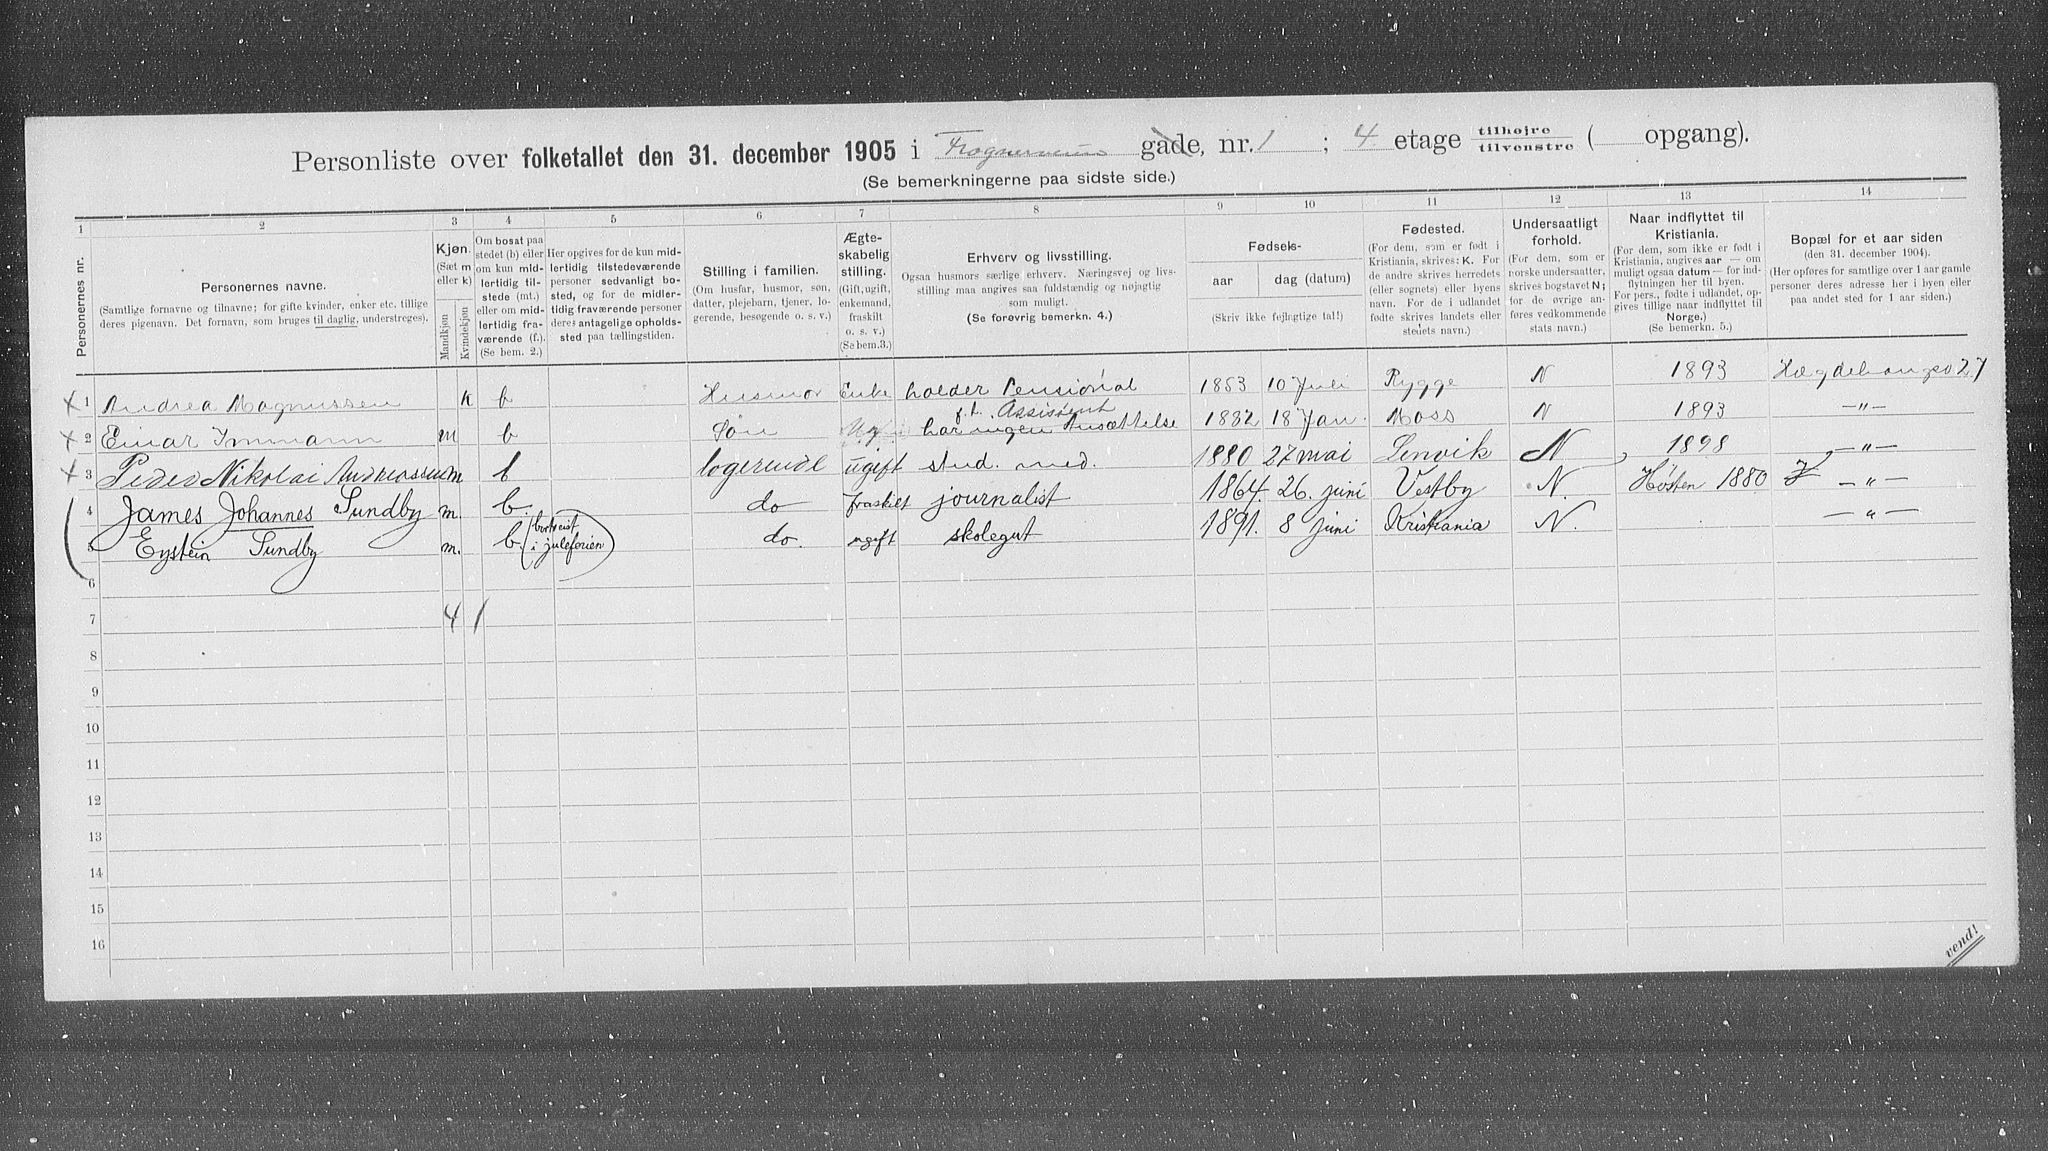 Personliste over folketallet den 31. december 1905 i Frognerveien gade, nr. 1 ; 4 etage tilhøjre / tilvenstre ( opgang).
(Se bemerkningerne paa sidste side.)
1 2 3 4 5 6 7 8 9 10 11 12 13 14
Personernes nr.
Personernes navne.
(Samtlige fornavne og tilnavne; for gifte kvinder, enker etc. tillige
deres pigenavn. Det fornavn, som bruges til daglig, understreges).
Kjøn.
(Sæt m
eller k)
Mandkjøn
Kvindekjøn
Om bosat paa
stedet (b) eller
om kun mid-
lertidig til-
stede (mt.)
eller om mid-
lertidig fra-
værende (f.).
(Se bem. 2.)
Her opgives for de kun mid-
lertidig tilstedeværende
personer sedvanligt bo-
sted, og for de midler-
tidig fraværende personer
deres antagelige opholds-
sted paa tællingstiden.
Stilling i familien.
(Om husfar, husmor, søn,
datter, plejebarn, tjener, lo-
gerende, besøgende o. s. v.)
Ægte-
skabelig
stilling.
(Gift, ugift,
enkemand,
fraskilt
o. s. v.)
(Se bem.3.)
Erhverv og livsstilling.
Ogsaa husmors særlige erhverv. Næringsvej og livs-
stilling maa angives saa fuldstændig og nøjagtig
som muligt.
(Se forøvrig bemerkn. 4.)
Fødsels-
aar
dag (datum)
(Skriv ikke fejlagtige tal!)
Fødested.
(For dem, som er født i
Kristiania, skrives: K. For
de andre skrives herredets
(eller sognets) eller byens
navn. For de i udlandet
fødte skrives landets eller
stedets navn.)
Undersaatligt
forhold.
(For dem, som er
norske undersaatter,
skrives bogstavet N;
for de øvrige an-
føres vedkommende
stats navn.)
Naar indflyttet til
Kristiania.
(For dem, som ikke er født i
Kristiania, angives aar — om
muligt ogsaa datum — for ind-
flytningen her til byen.
For pers., fødte i udlandet, op-
gives tillige naar indflyttet til
Norge.)
(Se bemerkn. 5.)
Bopæl for et aar siden
(den 31. december 1904).
(Her opføres for samtlige over 1 aar gamle
personer deres adresse her i byen eller
paa andet sted for 1 aar siden.)
x 1 Andrea Magnussen k b Husmor Enke holder Pensionat 1853 10 Juli Rygge N 1893 Hægdehaugsv 27
f.h. Assistent
x 2 Einar Immann m b Søn Ug har ingen Ansættelse 1882 18 Jan. Moss N 1893 —"—
x 3 Peder Nikolai Andreassen m b logerende ugift stud. med. 1880 27 mai Lenvik N 1898 —"—
4 James Johannes Sundby m. b. do fraskilt journalist 1864. 26. juni Vestby N. Høsten 1880 —"—
5 Eystein Sundby m. b. (bortreist i juleferien) do. ugift skolegut 1891. 8 juni Kristiania N. —"—
6
7 4 1
8
9
10
11
12
13
14
15
16
vend!